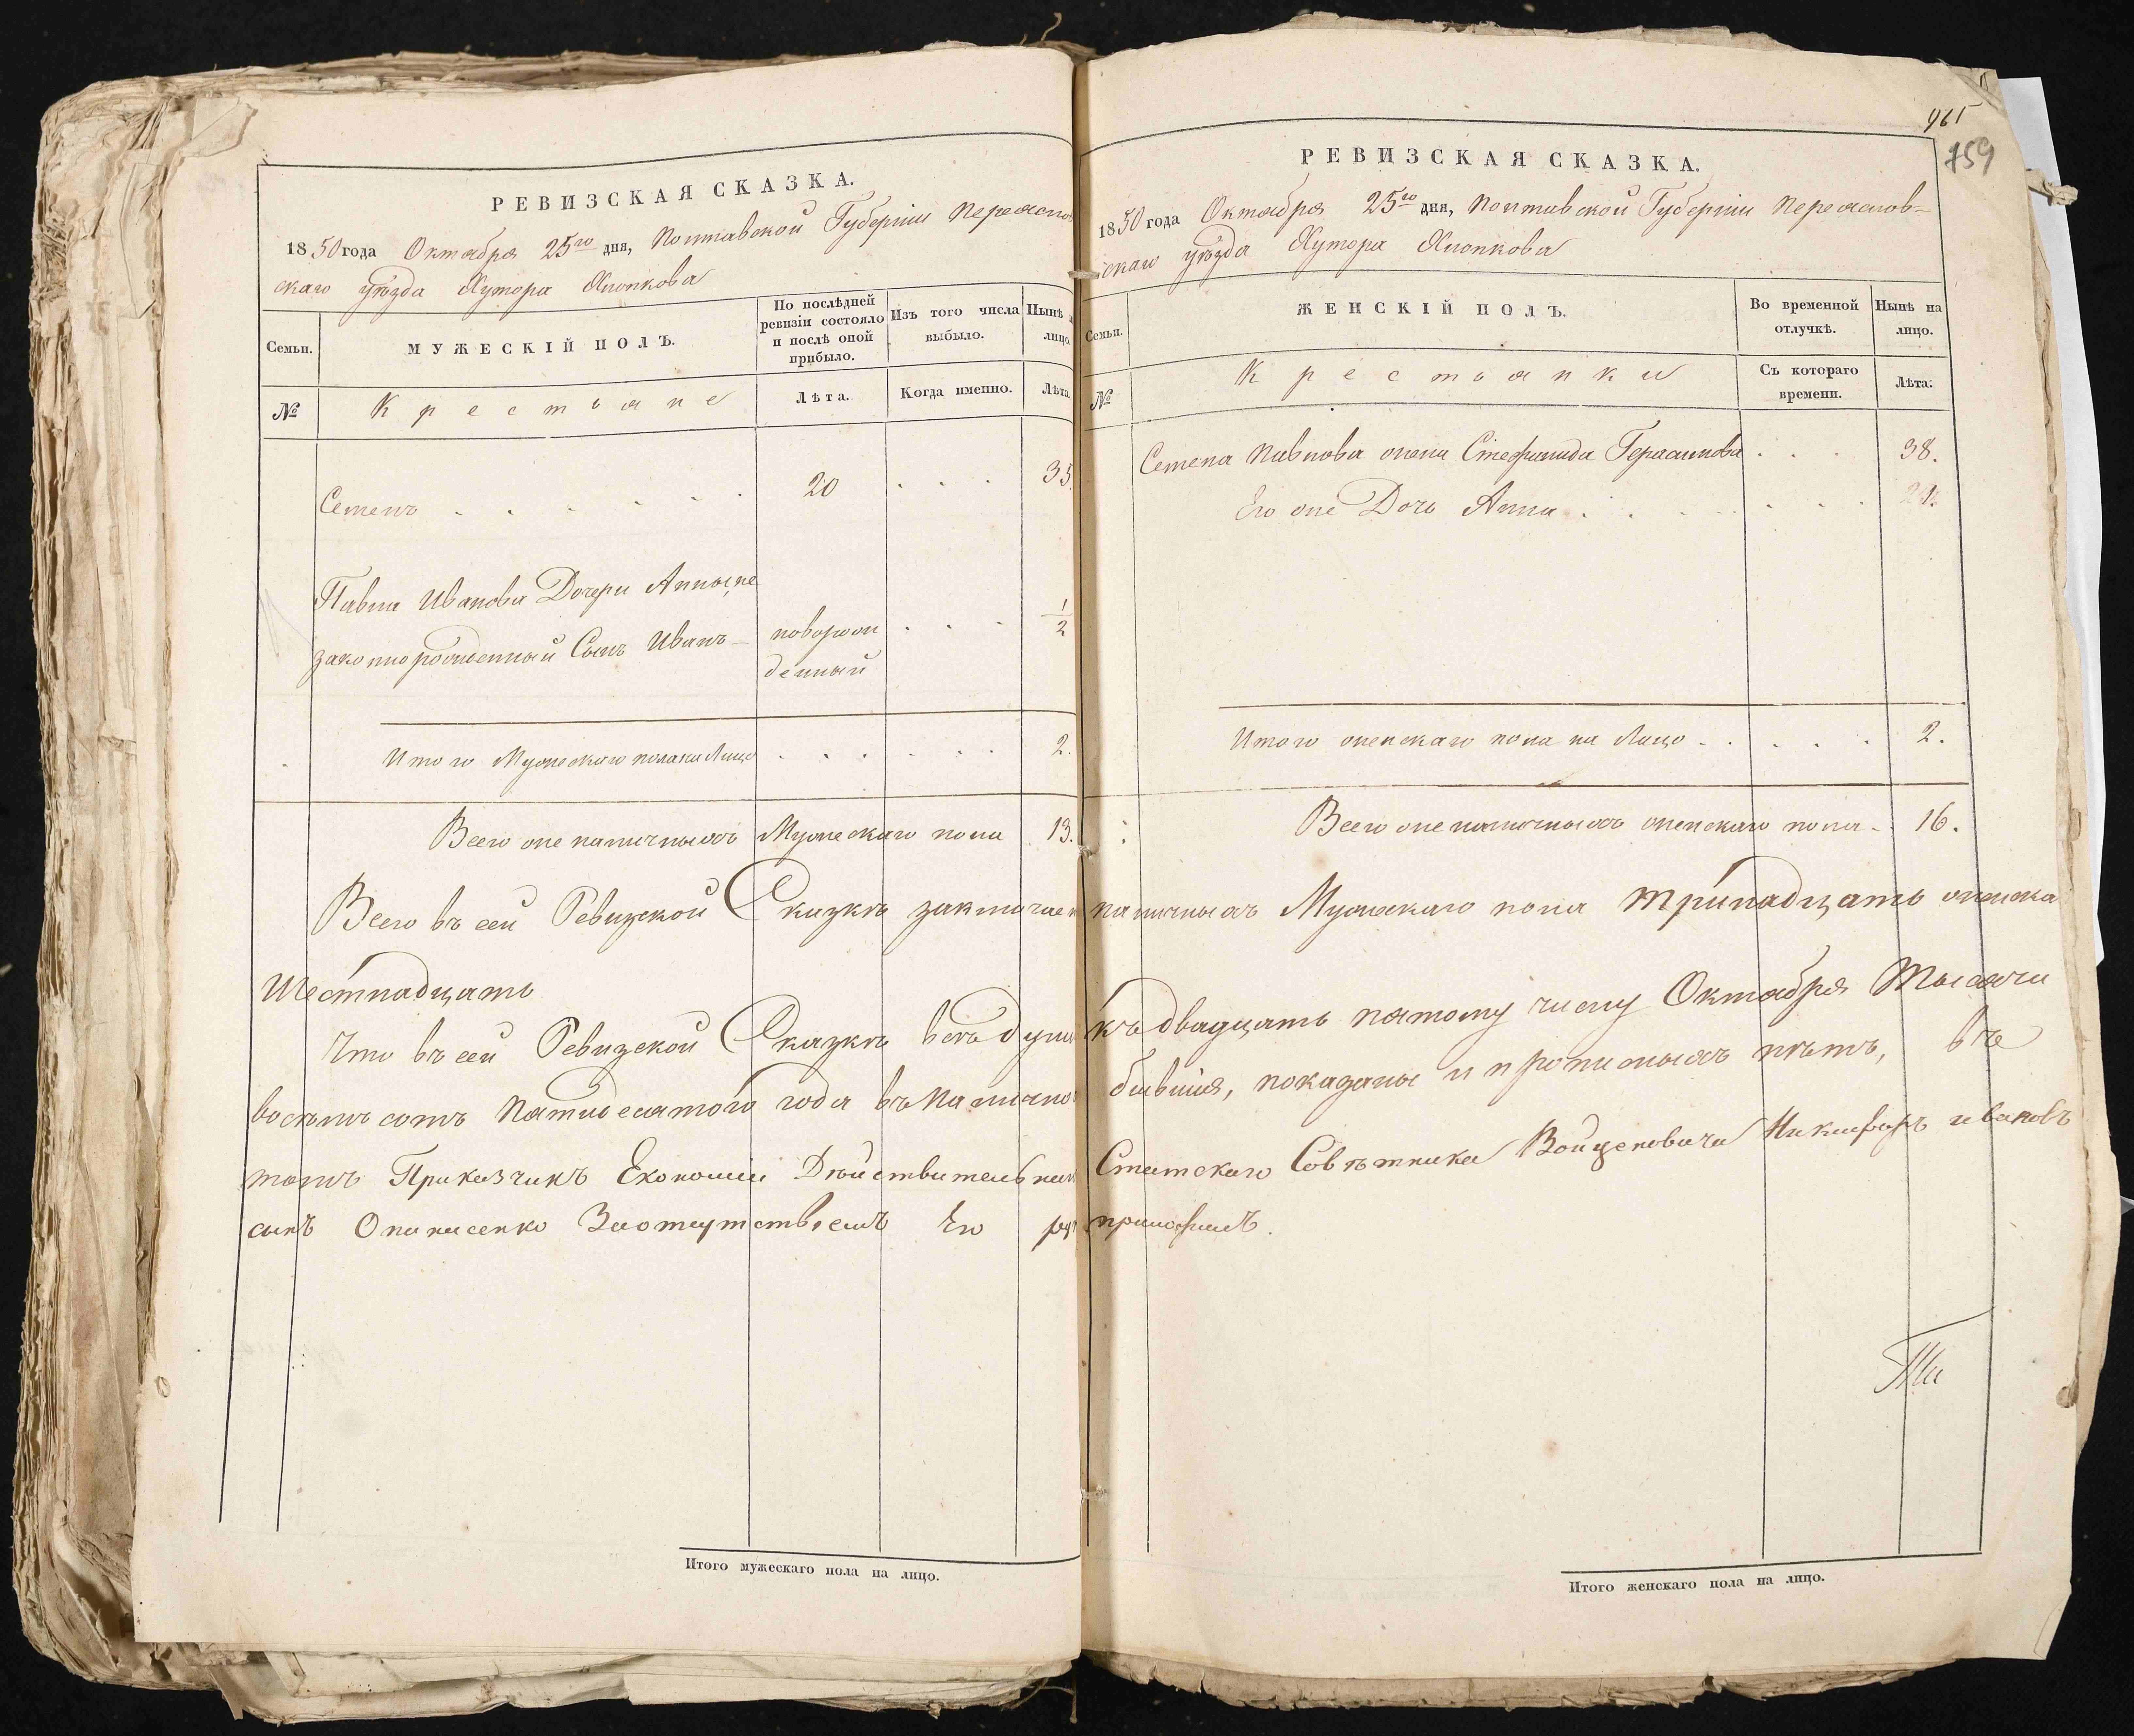 РЕВИЗСКАЯ СКАЗКА.
1850 года Октября 25го дня, Полтавской Губерніи Переяслов
скаго уѣзда Хутора Хлопкова
Семьи.
МУЖЕСКІЙ ПОЛЪ.
По послѣдней ревизіи состояло и послѣ оной прибыло.
Изъ того числа выбыло.
Нынѣ на лицо.
№
Крестьяне
Лѣта.
Когда именно.
Лѣта.
Семенъ . . . . . . 20 . . . 35.
Павла Иванова Дочери Анны, не
законнорожденный Сынъ Иванъ — новорож
денный . . . 1/2
Итого Мужескаго пола на Лицо . . . . . . 2.
Всего же наличныхъ Мужескаго пола 13.
Всего въ сей Ревизской Сказкѣ заключает
Шестнадцать
Что въ сей Ревизской Сказкѣ всѣ души
восѣмъ сотъ Пятидесятого года въ Налично
томъ Приказчикъ Економіи Дѣйствительнаг
сынъ Опанасенко Заотсутствіемъ Его рук
Итого мужескаго пола на лицо.
961
759
РЕВИЗСКАЯ СКАЗКА.
1850 года Октября 25го дня, Полтавской Губерніи Переяслов=
скаго уѣзда Хутора Хлопкова
Семьи.
ЖЕНСКІЙ ПОЛЪ.
Во временной отлучкѣ.
Нынѣ на лицо.
№
Крестьянки
Съ котораго времени.
Лѣта.
Семена Павлова жена Стефанида Герасимова . . . 38.
Его же Дочь Анна . . . . . .
Итого женскаго пола на Лицо . . . . . 2.
Всего же наличныхъ женскаго пола — 16.
наличныхъ Мужескаго пола тринадцать женска
къ двадцать пятому числу Октября Тысячи
бывшія, показаны и прописныхъ нѣтъ, въ че
Статского Совѣтника Войцеховича Никифоръ ивановъ
приложилъ.
Итого женскаго пола на лицо.